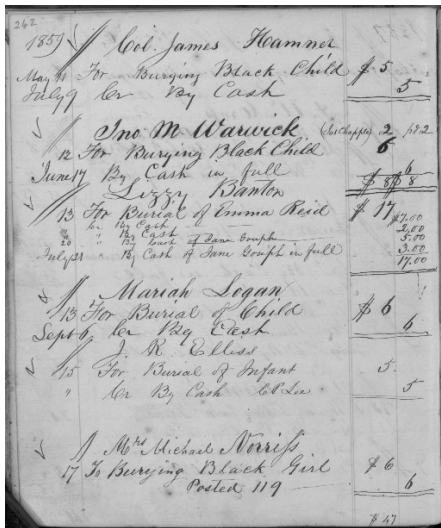 262
1859 Col. James Hamner
May 11 For Burying Black Child $ 5
July 9 Cr By Cash 5
Jno M Warwick (Jas Chapple) 2 pd 2
12 For Burying Black Child 6
June 17 By Cash in full 6
$ 8 $ 8
Lizzy Banton
13 For Burial of Emma Reid $ 17
Cr By Cash $7.00
" By Cash 2.00
20 " By Cash of Jane Gouph 5.00
July 21 " By Cash of Jane Gouph in full 3.00
17.00
Mariah Logan
13 For Burial of Child $ 6
Sept 6 Cr By Cash 6
J. R. Elliss
15 For Burial of Infant 5
" Cr By Cash 5
Mrs Michael Norriss
17 To Burying Black Girl $ 6
Posted 119 6
$ 47